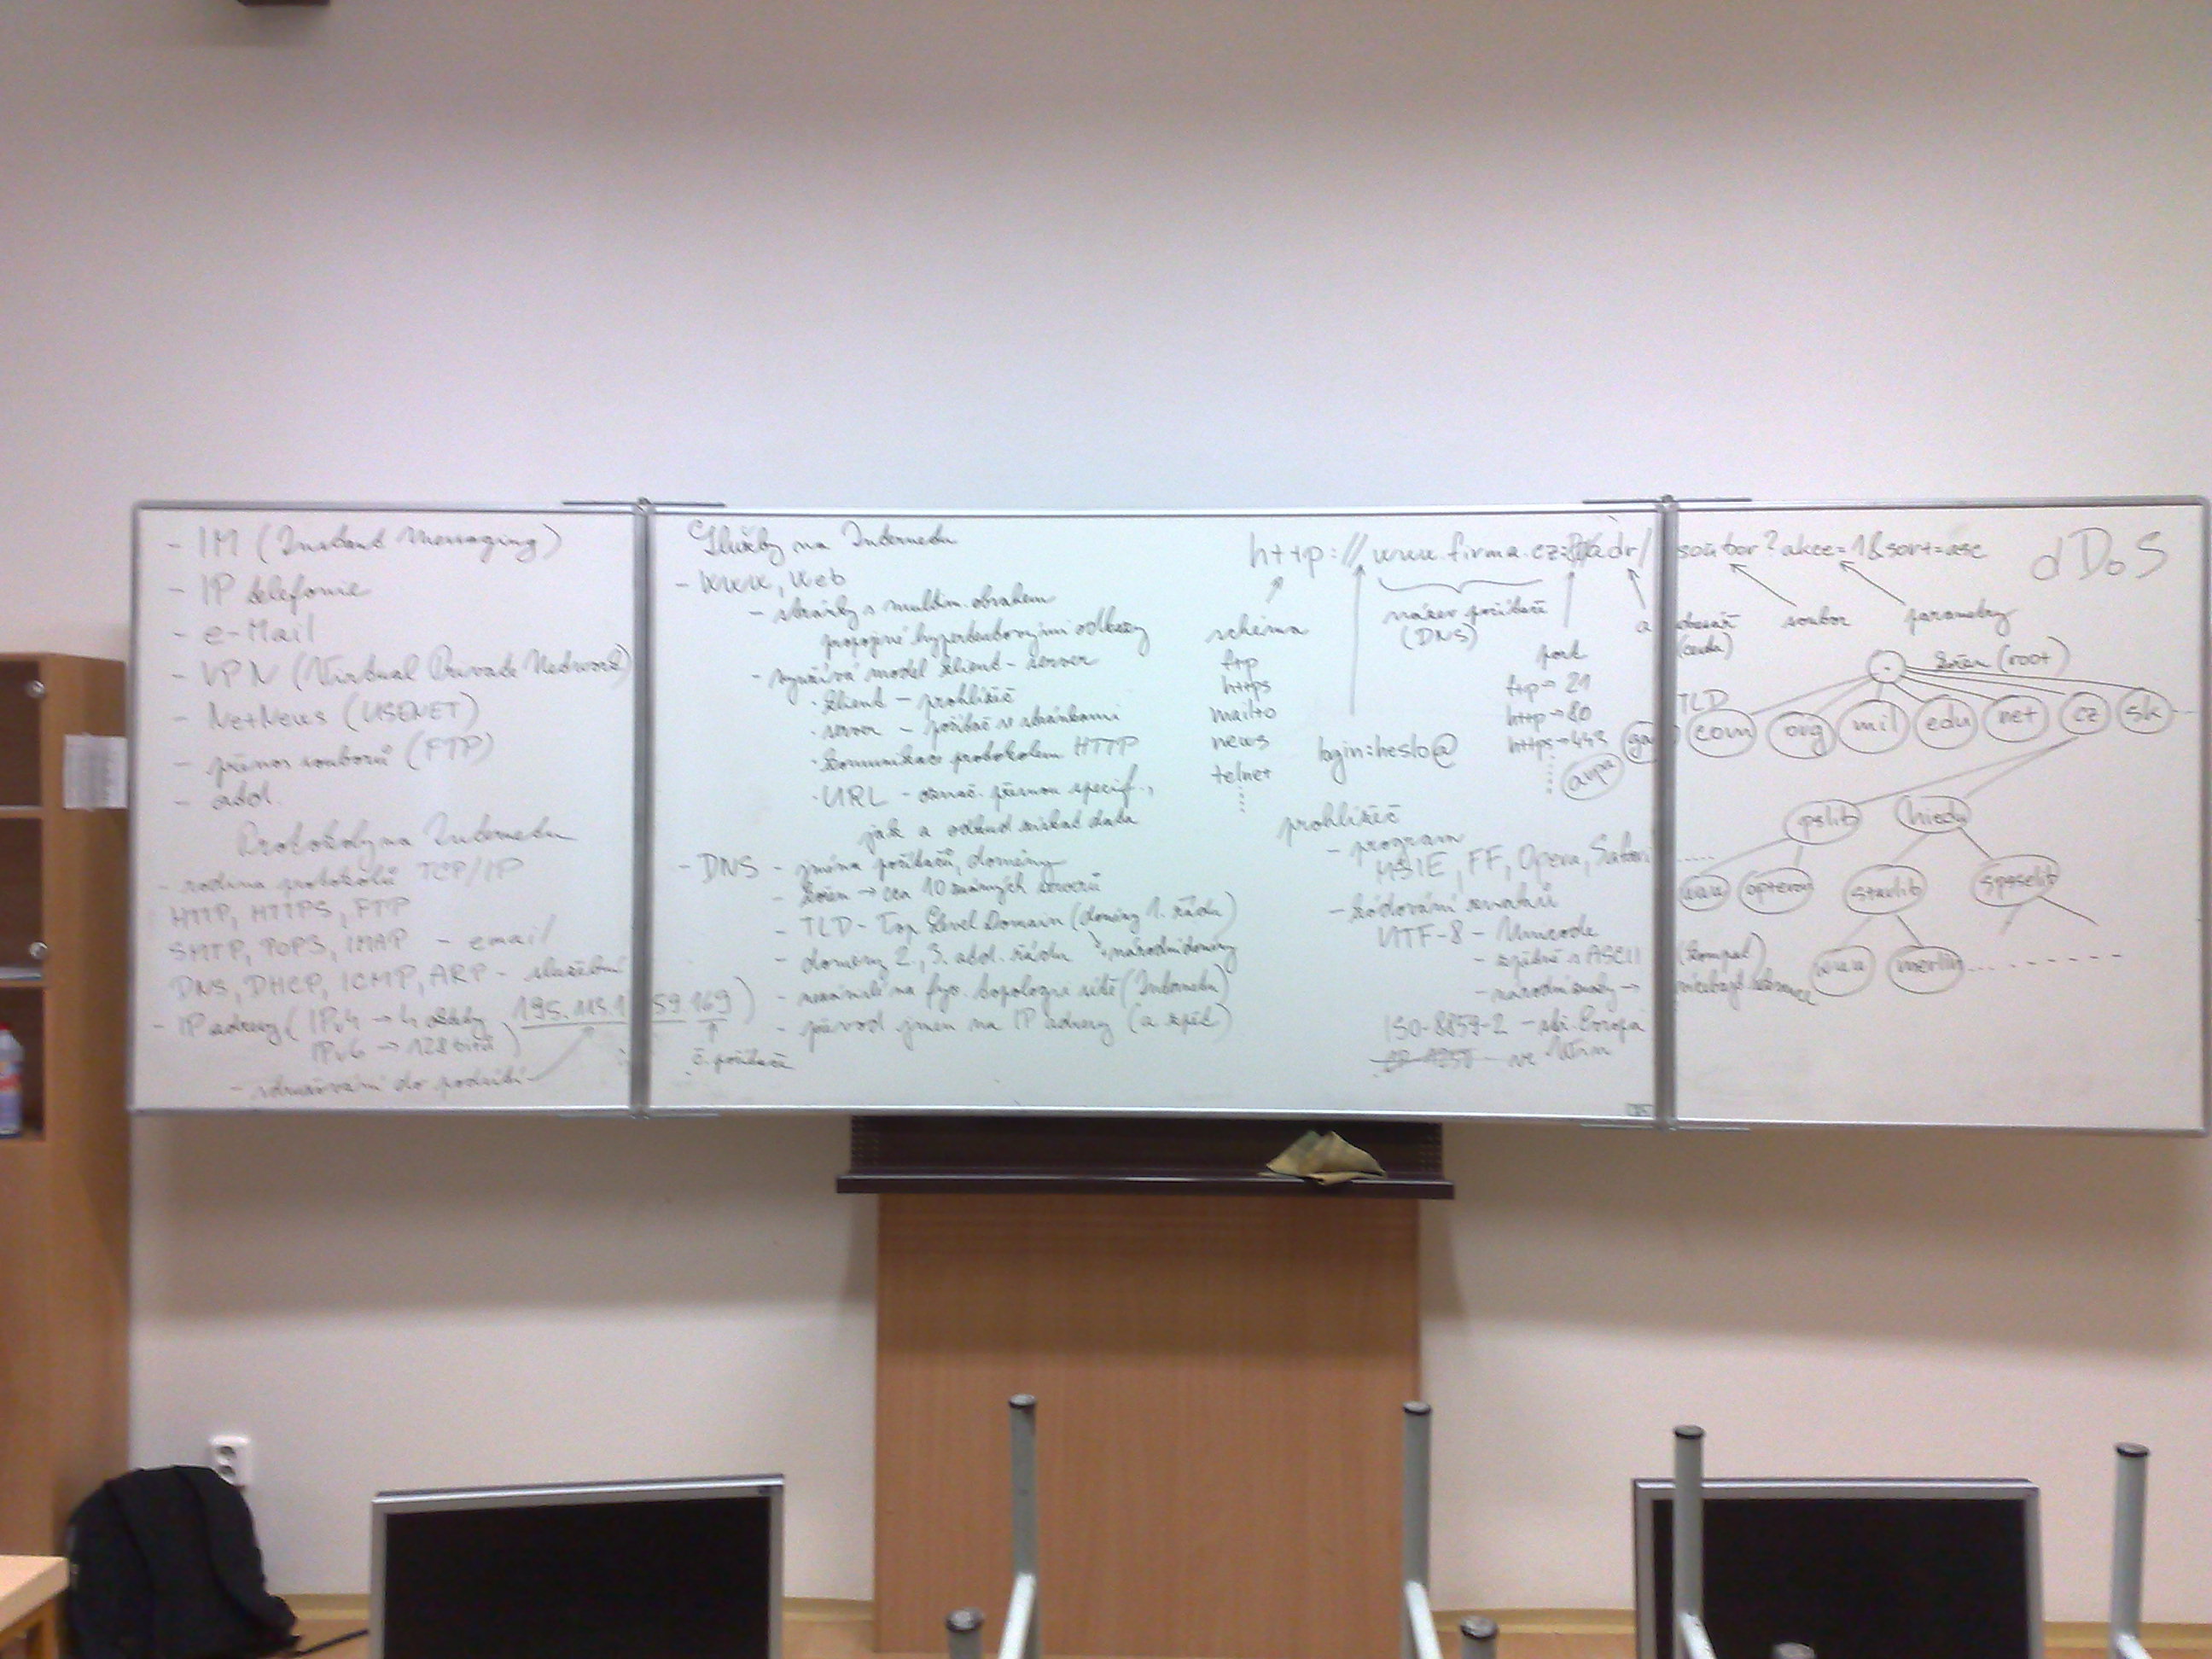 Služby na Internetu
- www, web
- stránky s multim. obsahem
propojené hypertextovými odkazy
- využívá model klient - server
· klient - prohlížeč
· server - počítač se stránkami
· komunikace protokolem HTTP
· URL - označ. přesnou specif.,
jak a odkud získat data
- DNS - jména počítačů, domény
- kořen → cca 10 známých serverů
- TLD - Top Level Domain (domény 1. řádu)
↳ národní domény
- domény 2., 3. atd. řádu
- nezávislé na fyz. topologii sítě (Internetu)
- převod jmen na IP adresy (a zpět)
- IM (Instant Messaging)
- IP telefonie
- e-Mail
- VPN (Virtual Private Network)
- NetNews (USENET)
- přenos souborů (FTP)
- atd.
Protokoly na Internetu
- rodina protokolů TCP/IP
HTTP, HTTPS, FTP
SMTP, POP3, IMAP - email
DNS, DHCP, ICMP, ARP - služební
- IP adresy ( IPv4 → 4 oktety 59.169)
IPv6 → 128 bitů )
č. počítače
- sdružování do podsítí
http://www.firma.cz: adr/soubor?akce=1&sort=asc
schéma
ftp
https
mailto
news
telnet
login:heslo@
název počítače
(DNS)
port
ftp → 21
http → 80
https → 443
adresář
(cesta)
soubor
parametry
dDoS
kořen (root)
TLD
arpa
com
org
mil
edu
net
cz
sk
pslib
hiedu
www
opteron
stavlib
spgselib
www
merlin
prohlížeč
- program
MSIE, FF, Opera, Safari
- kódování znaků
UTF-8 - Unicode
- zpětně s ASCII (kompat.)
- národní znaky →
ISO-8859-2 - stř. Evropa
CP 1250 - ve Win